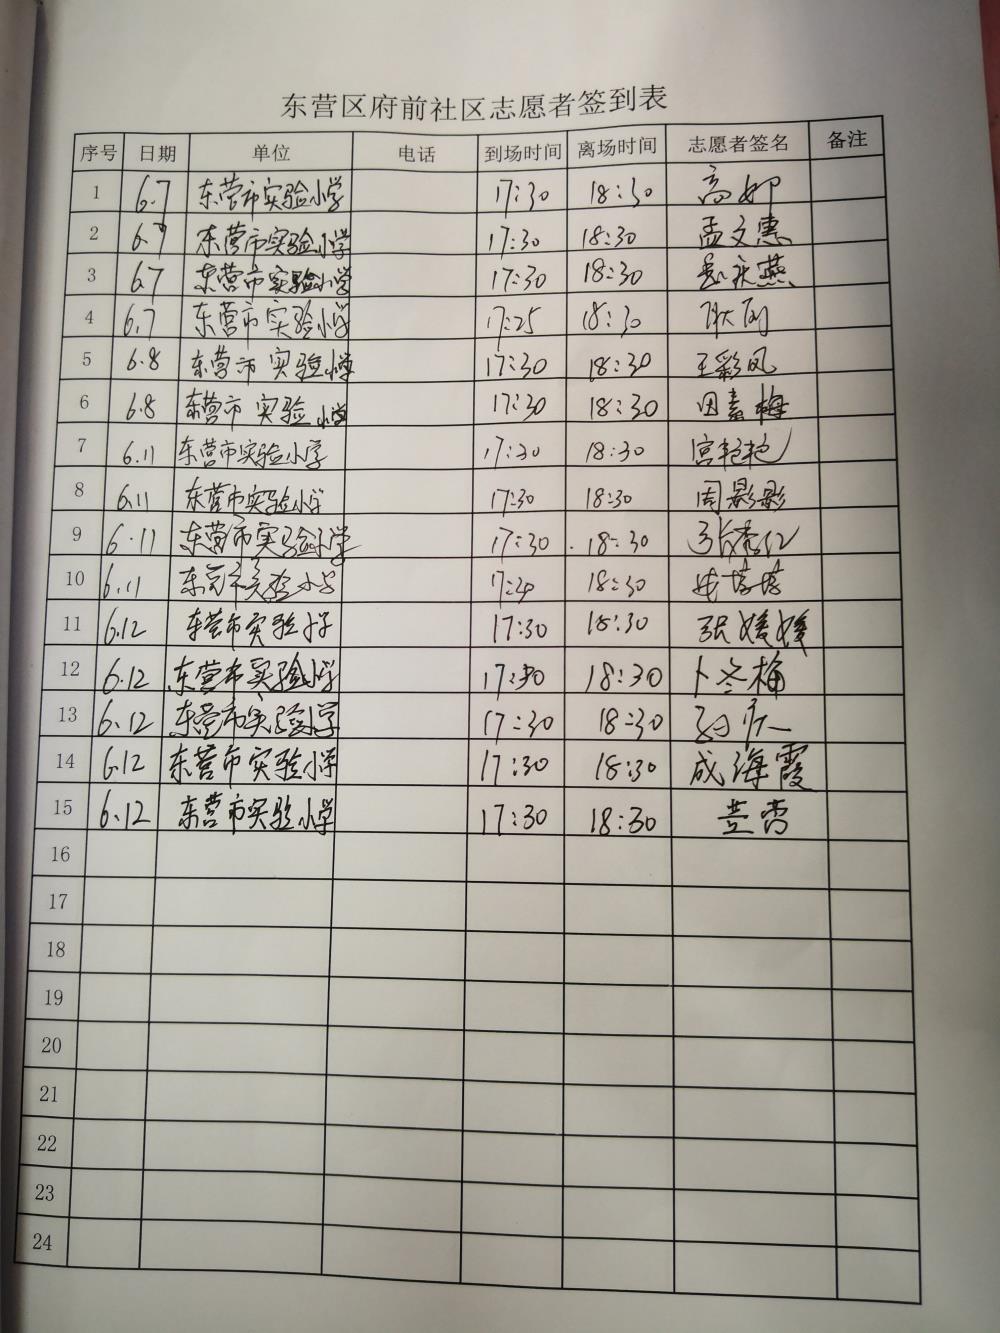 东营区府前社区志愿者签到表
序号 日期 单位 电话 到场时间 离场时间 志愿者签名 备注
1 6.7 东营市实验小学 17:30 18:30 高
2 6.7 东营市实验小学 17:30 18:30 孟文惠
3 6.7 东营市实验小学 17:30 18:30 燕
4 6.7 东营市实验小学 17:25 18:30
5 6.8 东营市实验小学 17:30 18:30 王彩凤
6 6.8 东营市实验小学 17:30 18:30 田素梅
7 6.11 东营市实验小学 17:30 18:30 宫艳艳
8 6.11 东营市实验小学 17:30 18:30 周影影
9 6.11 东营市实验小学 17:30 18:30 张秀红
10 6.11 东营市实验小学 18:30
11 6.12 东营市实验小学 17:30 18:30 张媛媛
12 6.12 东营市实验小学 17:30 18:30 卜冬梅
13 6.12 东营市实验小学 17:30 18:30
14 6.12 东营市实验小学 17:30 18:30 成海霞
15 6.12 东营市实验小学 17:30 18:30
16
17
18
19
20
21
22
23
24